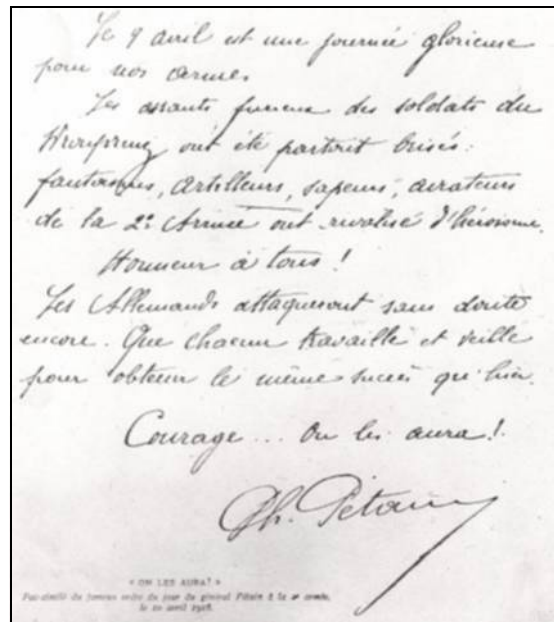 Le 9 avril est une journée glorieuse
pour nos armes
Les assauts furieux des soldats du
Kronprinz ont été partout brisés:
fantassins, artilleurs, sapeurs, aviateurs
de la 2e Armée ont rivalisé d'héroïsme.
Honneur à tous !
Les Allemands attaqueront sans doute
encore. Que chacun travaille et veille
pour obtenir le même succès qu'hier.
Courage... On les aura !
Ph. Pétain
« ON LES AURA ! »
Fac-similé du fameux ordre du jour du général Pétain à la 2e armée,
le 10 avril 1916.